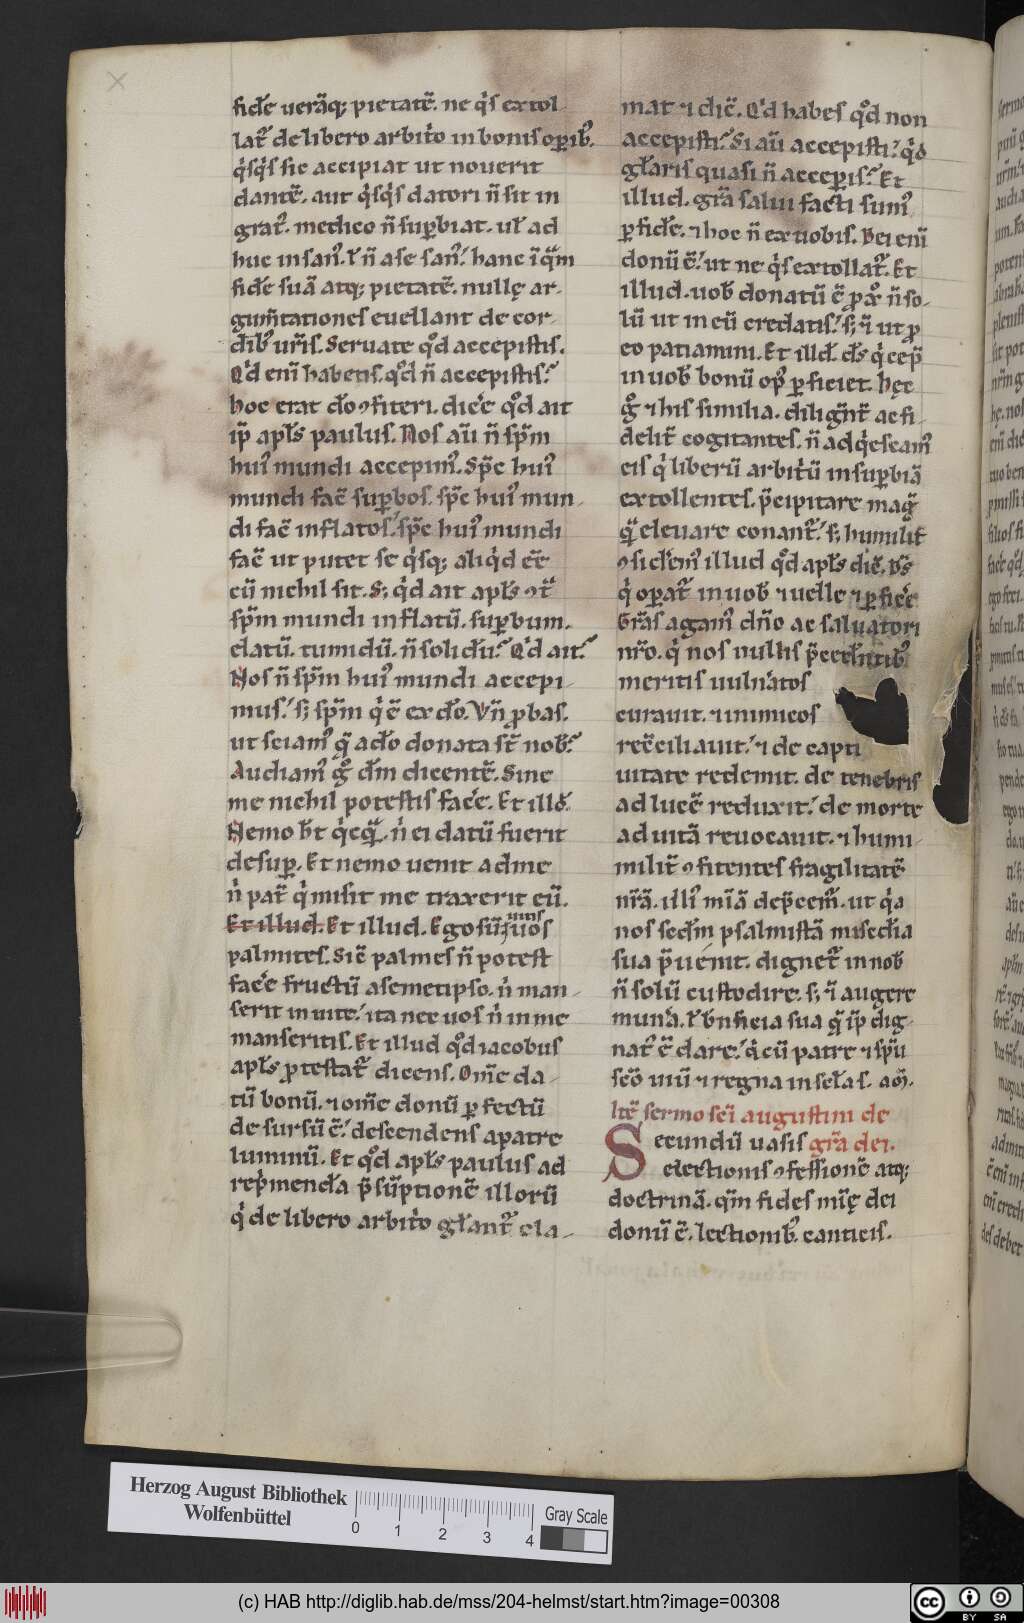 fidē uerāq; pietatē. ne q̇s extol
lat᷑ de libero arbit̓o in bonis oꝑib᷒.
q̇sq̇s sic accipiat ut nouerit
dantē. aut q̇sq̇s datori n̄ sit in
grat᷒. medico n̄ suꝑbiat. uł ad
huc insan᷒. ł n̄ a se san᷒. hanc ī q̄m
fidē suā atq; pietatē. nullę ar-
gum̄tationes euellant de cor-
dib᷒ ur̄is. Seruate qd̊ accepistis.
Q'd enī habetis. qd̊ n̄ accepistis?
hoc erat dō ꝯfiteri. dic̓e qd̊ ait
ip̄ apłs paulus. Nos aū n̄ sp̄m
hui᷒ mundi accepim᷒. Sp̄c hui᷒
mundi fac̄ suꝑbos. sp̄c hui᷒ mun-
di fac̄ inflatos. sp̄c hui᷒ mundi
fac̄ ut putet se q̇sq; aliq̇d eē
cū nichil sit. S; q̇d ait apłs ꝯt̄
sp̄m mundi inflatū. suꝑbum.
elatū. tumidū. n̄ solidū? Q'd ait?
Nos n̄ sp̄m hui᷒ mundi accepi-
mus. s; sp̄m q̇ ē ex dō. Vn̄ ꝓbas.
ut sciam᷒ q̄ a dō donata st̄ nob᷒.
Audiam᷒ g̊ dn̄m dicentē. Sine
me nichil potestis fac̓e. Et illđ.
Nemo ht̄ q̇cq̄. n̓ ei datū fuerit
desuꝑ. Et nemo uenit ad me
n̓ pat̄ q̇ misit me traxerit eū.
Et illud. Et illud. Ego sū uitis uos
palmites. Sic̄ palmes n̄ potest
fac̓e fructū a semetipso. n̓ man-
serit in uite. ita nec uos n̓ in me
manseritis. Et illud qd̊ iacobus
apłs ꝓtestat᷑ dicens. Om̄e da-
tū bonū. ⁊ om̄e donū ꝑfectū
desursū ē. descendens a patre
luminū. Et qd̊ apłs paulus ad
rep̓mendā p̄sūptionē illorū
q̇ de libero arbit̓o głant᷑ cla-
mat ⁊ dic̄. Q'd habes qd̊ non
accepisti? Si aū accepisti. q̇d
głaris quasi n̄ acceꝑis? Et
illud. gr̄a salui facti sum᷒
ꝑ fidē. ⁊ hoc n̄ ex uobis. Dei enī
donū ē. ut ne q̇s extollat᷑. Et
illud. uob̄ donatū ē ꝓ xp̊ n̄ so-
lū ut in eū credatis. s; ⁊ ut ꝓ
eo patiamini. Et illđ. ds̄ q̇ cep̄
in uob̄ bonū op᷒ ꝑficiet. hęc
g̊ ⁊ his similia. dilig̓nt̄ ac fi-
delit̄ cogitantes. n̄ adq̇escam᷒
eis q̇ liberū arbit̓ū in suꝑbiā
extollentes. p̄cipitare mag̓
q̄ eleuare conant᷑. s; humilit̄
ꝯsid̓em᷒ illud qd̊ apłs dic̄. Ds̄
q̇ oꝑat᷑ in uob̄ ⁊ uelle ⁊ ꝑfic̓e
Gr̄as agam᷒ dn̄o ac saluatori
nr̄o. q̇ nos nullis p̄cedentib᷒
meritis uuln̓atos
curauit. ⁊ inimicos
rec̄ciliauit. ⁊ de capti
uitate redemit. de tenebris
ad lucē reduxit. de morte
ad uitā reuocauit. ⁊ humi-
milit̄ ꝯfitentes fragilitatē
nr̄ā. illi᷒ mīā dep̄cem᷒. ut q̇a
nos sec̄dm psalmistā misedia
sua p̄uenit. dignet᷑ in nob̄
n̄ solū custodire. s; ⁊ augere
mun̓a. ł b̄nficia sua q̄ ip̄ dig-
nat᷒ ē dare. q̇ cū patre ⁊ sp̄u
sc̄o uiu̅ ⁊ regna in sc̄la s. am̄.
Itē sermo sc̄i augustini de
Secundū uasis gr̄a dei.
electionis ꝯfessionē atq;
doctrinā. q̄m fides mīę dei
donū ē. lectionib᷒. canticis.
Herzog August Bibliothek
Wolfenbüttel
0 1 2 3 4
Gray Scale
(c) HAB http://diglib.hab.de/mss/204-helmst/start.htm?image=00308
cc BY SA